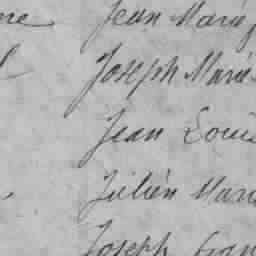 Jean Marie
Joseph Marie
Jean Louis
Julien Marie
Joseph